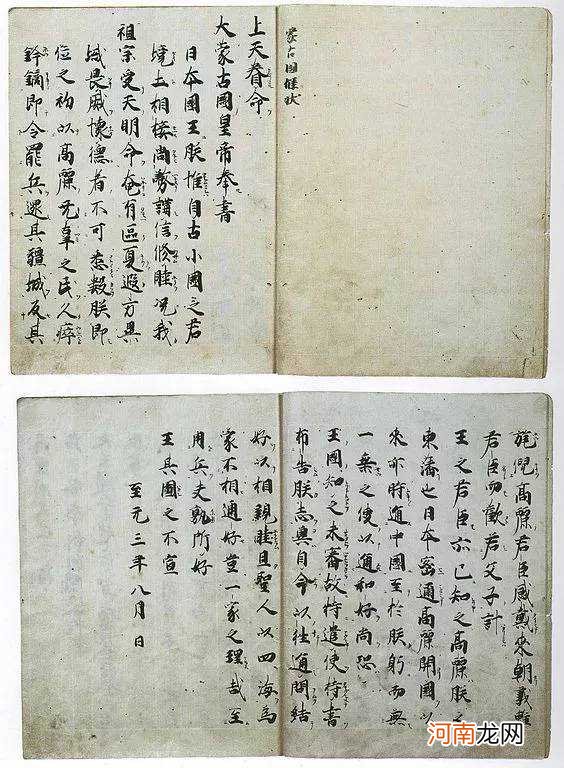 蒙古國牒状
上天眷命
大蒙古國皇帝奉書
日本國王朕惟自古小國之君
境土相接尚務講信修睦況我
祖宗受天明命奄有區夏遐方異
域畏威懐德者不可悉數朕即
位之初以高麗无辜之民久瘁
鋒鏑即令罷兵還其疆域反其
旄倪高麗君臣感戴來朝義雖
君臣而歡若父子計
王之君臣亦已知之高麗朕之
東藩也日本密迩高麗開國以
來亦時通中國至於朕躬而無
一乗之使以通和好尚恐
王國知之未審故特遣使持書
布告朕志冀自今以往通問結
好以相親睦且聖人以四海為
家不相通好豈一家之理哉至
用兵夫孰所好
王其圖之不宣
至元三年八月 日
河南龙网